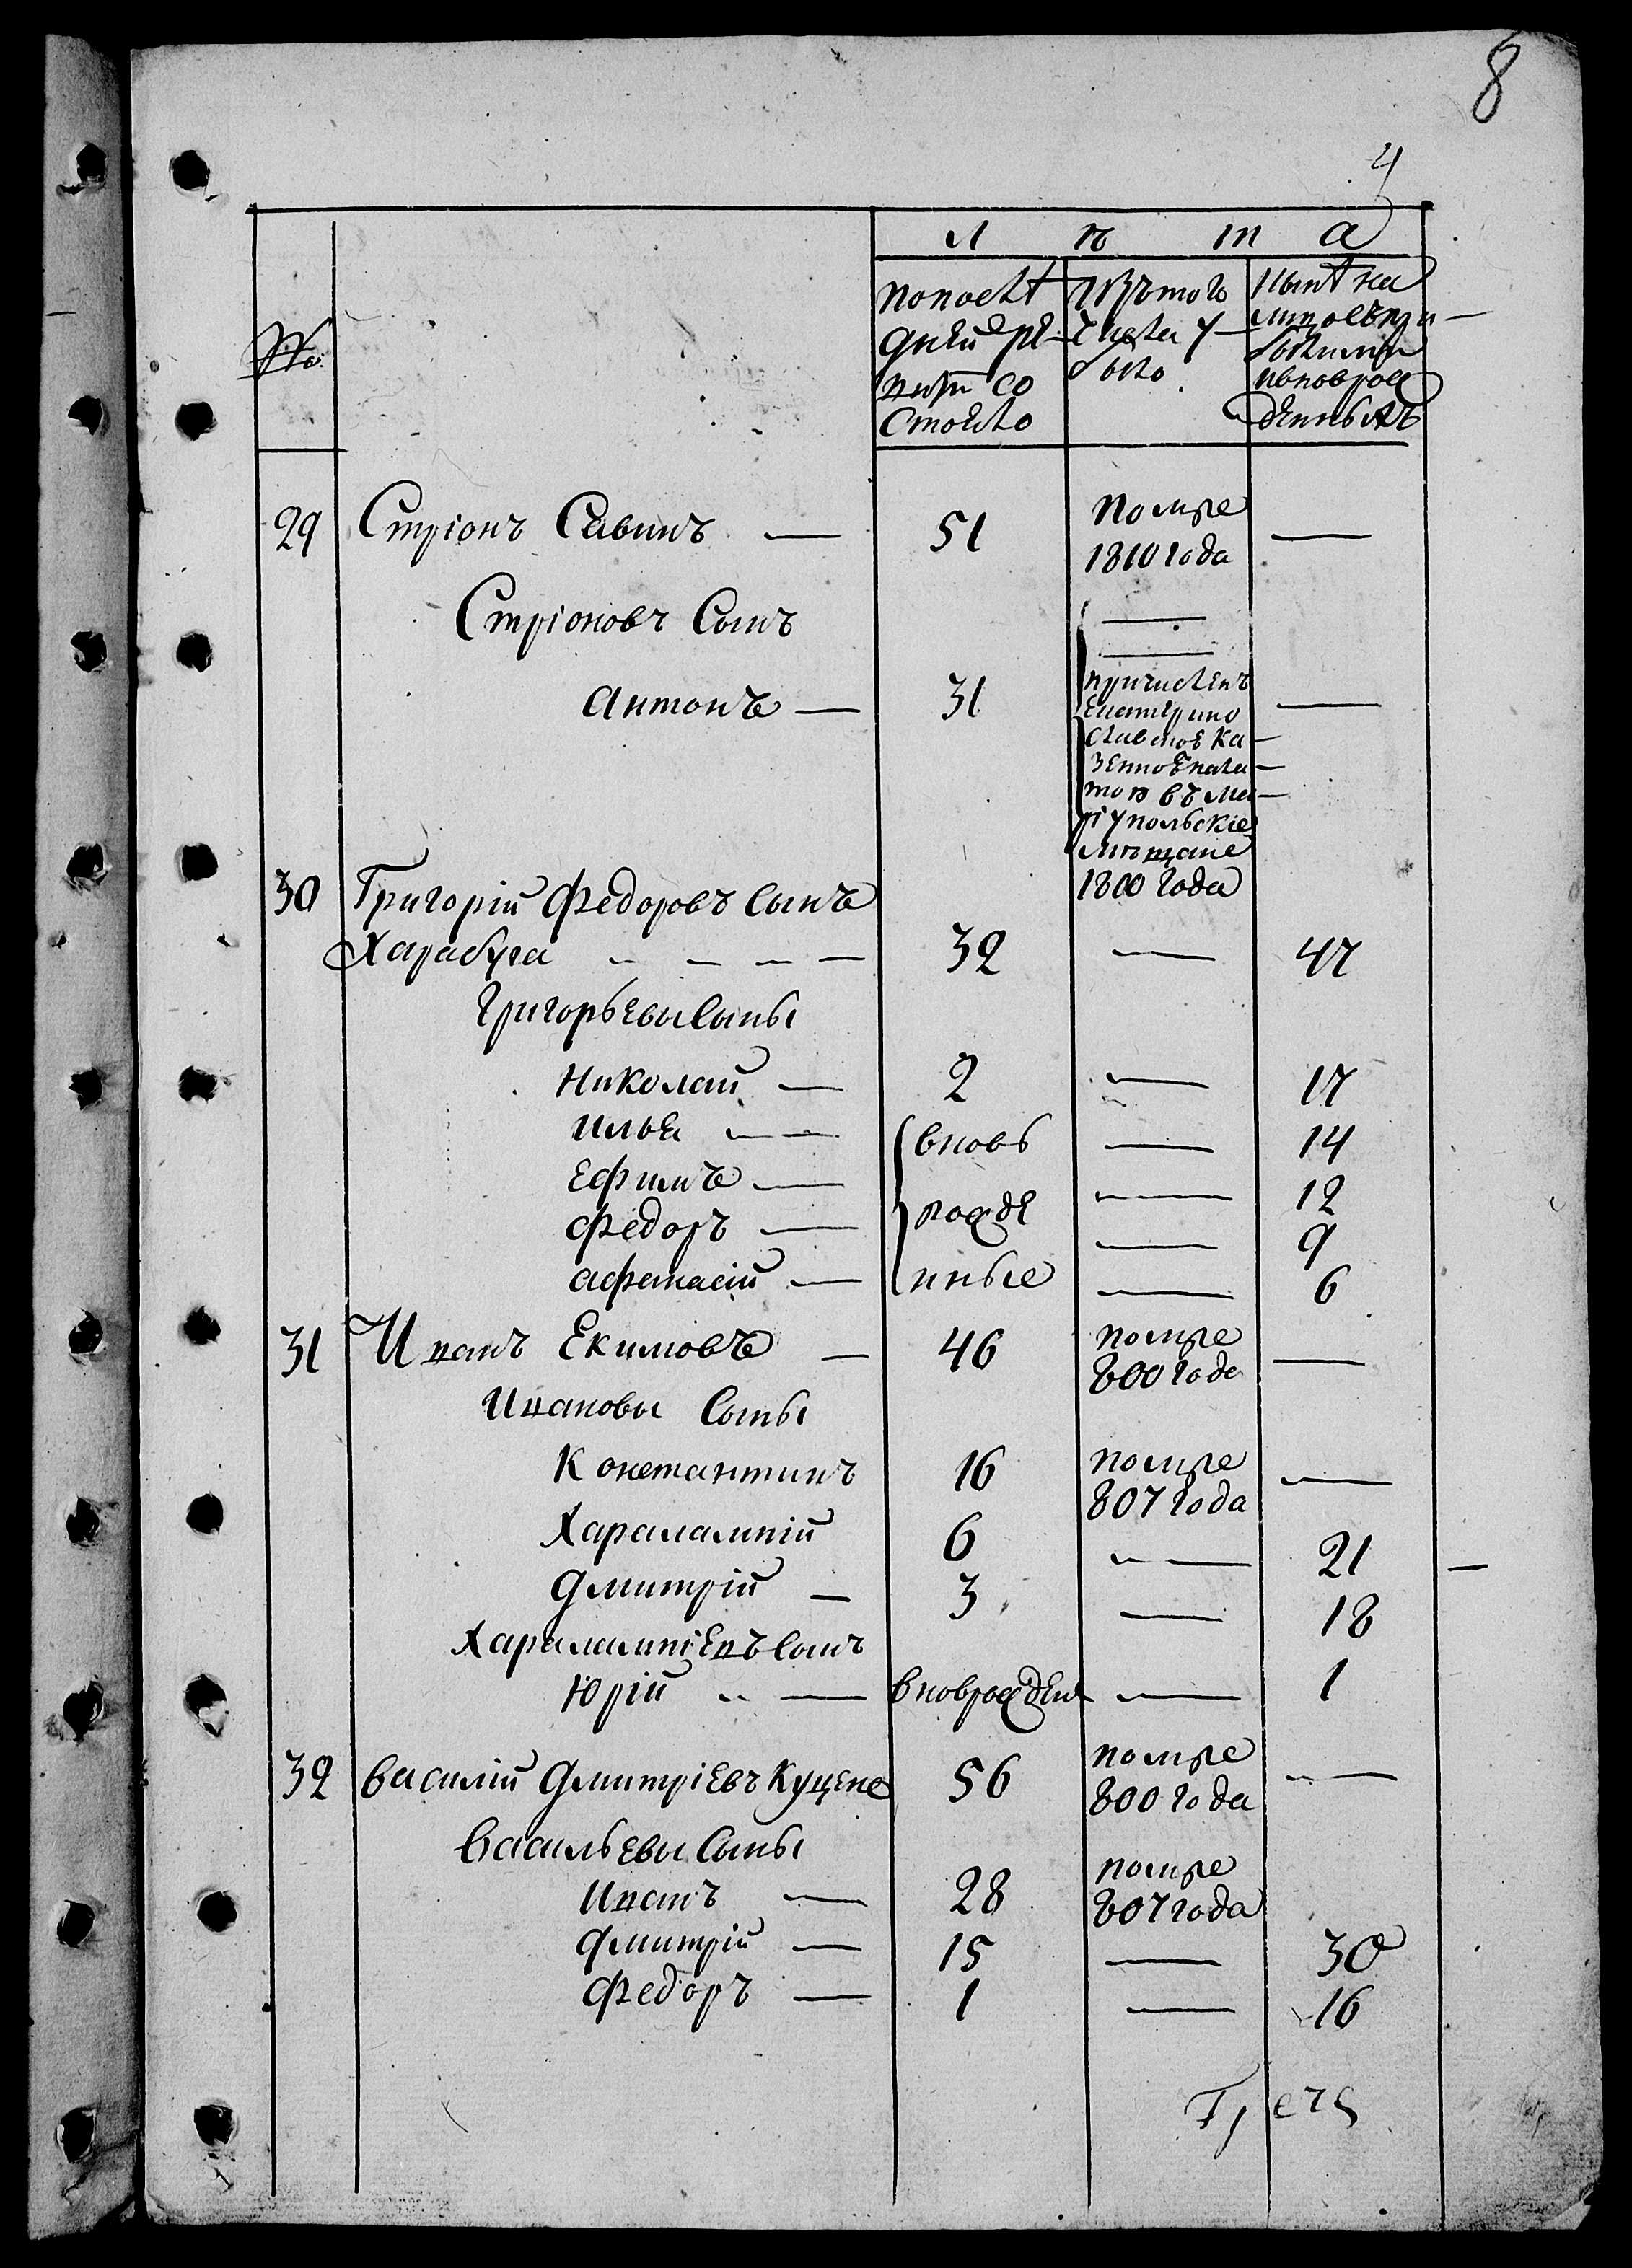 8
4
Л ѣ т а
№
по послѣ
дней ре
визіи со
стояло
изъ того
числа у
было
нынѣ на
лицо съ при
былими
и вновь рож
денныхъ
29 Стріонъ Савинъ — 51 помре —
1810 года
Стріоновъ Сынъ —
Антонъ — 31 причисленъ —
Екатерино
славскоє ка
зенноє пала
тою въ Ма
ріупольскіе
мѣщане
1800 года
30 Григорій Федоровъ Сынъ
Харабуга — 32 — 47
Григорьевы Сыны
Николай — 2 — 17
Илья — вновь — 14
Ефимъ — — 12
Федоръ — рожде — 9
Афанасій — нные — 6
31 Иванъ Екимовъ — 46 помре —
800 года
Ивановы Сыны
Константинъ 16 помре —
807 года
Харалампій 6 — 21
Дмитрій — 3 — 18
Харалампіевъ Сынъ
Юрій — вновь рожден — 1
32 Василій Дмитріевъ Куцене 56 помре —
800 года
Васильевы Сыны
Иванъ — 28 помре
807 года
Дмитрій — 15 — 30
Федоръ — 1 — 16